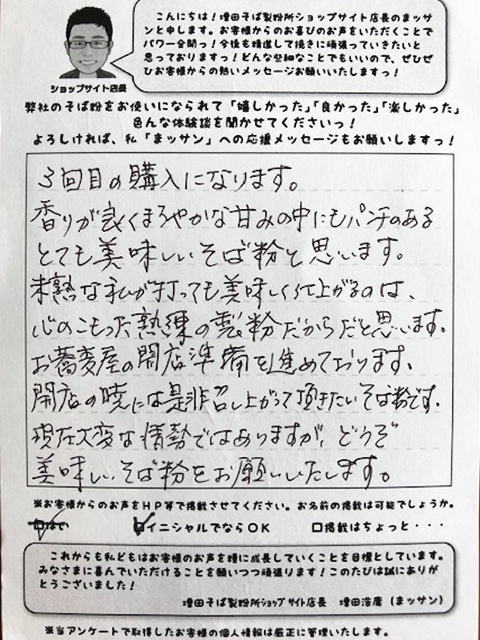 こんにちは!増田そば製粉所ショップサイト店長のまッサ
ンと申します。お客様からのお喜びのお声をいただくことで
パワー全開っ!今後も精進して挽きに頑張っていきたいと
思っております!どんな些細なことでもいいので、ぜひぜ
ひお客様からの熱いメッセージお願いいたしますっ!
ショップサイト店長
弊社のそば粉をお使いになられて「嬉しかった」「良かった」「楽しかった」
色んな体験談を聞かせてくださいっ!
よろしければ、私「まッサン」への応援メッセージもお願いしますっ!
3回目の購入になります。
香りが良くまろやかな甘みの中にもパンチのある
とても美味しいそば粉と思います。
未熟な私が打っても美味しく仕上がるのは、
心のこもった熟練の製粉だからだと思います。
お蕎麦屋の開店準備を進めております、
開店の暁には是非召し上がって頂きたいそば粉です。
現在大変な情勢ではありますが、どうぞ
美味しいそば粉をお願いいたします。
※お客様からのお声をHP等で掲載させてください。お名前の掲載は可能でしょうか。
□はい □イニシャルでならOK □掲載はちょっと・・・
これからも私どもはお客様のお声を糧に成長していくことを目標としています。
みなさまに喜んでいただけることを願いつつ頑張ります!このたびは誠にありが
とうございました!
増田そば製粉所ショップサイト店長 増田浩庸(まッサン)
※当アンケートで取得したお客様の個人情報は厳正に管理いたします。